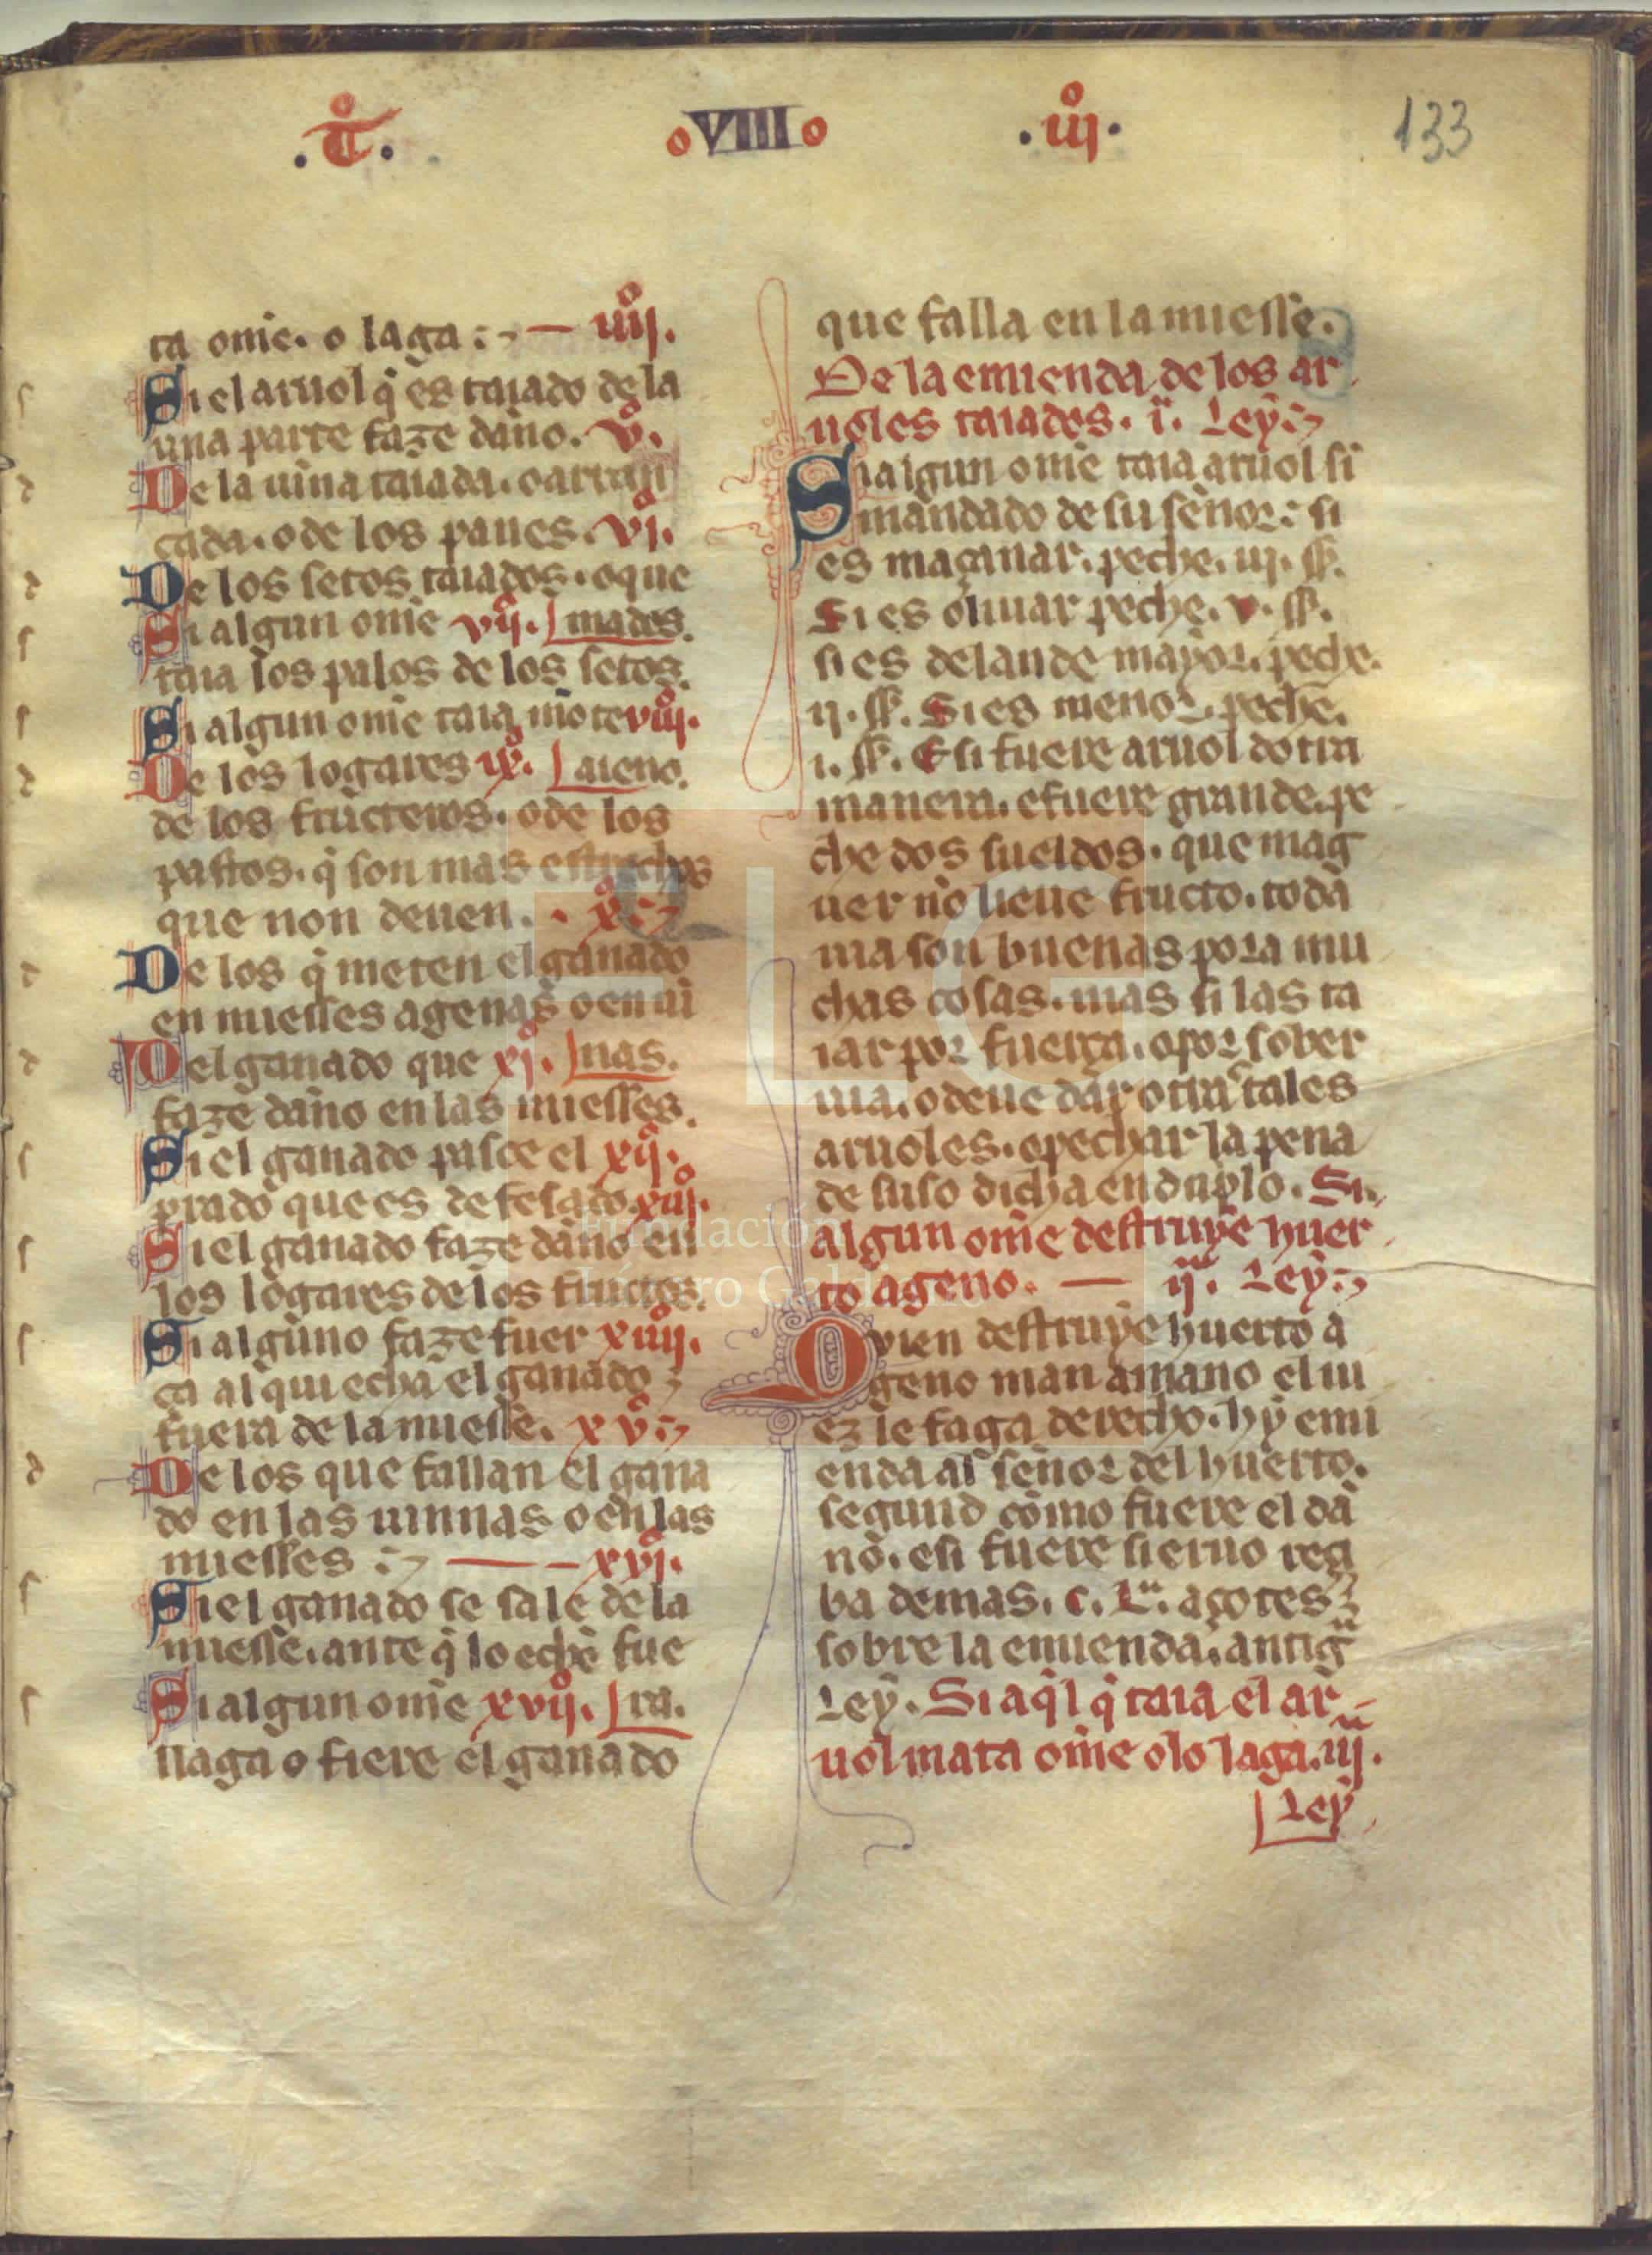 .T̊. VIII .iij̊. 133
ta omē. o laga : — iiij̊.
Si el aruol q̄ es taiado de la
una parte faze dāno. v̊.
De la uina taiada. o arran
cada. o de los panes. vi̊.
De los setos taiados. o que
Si algun omē vij̊. mados.
taia los palos de los setos.
Si algun omē taia mōte viij̊.
De los logares ix̊. aieno.
de los fructeros. o de los
pastos. q̄ son mas estrechos
que non deuen. x̊.
De los q̄ meten el ganado
en miesses agenas o en ui
Del ganado que xi̊. nas.
faze dāno en las miesses.
Si el ganado pasce el xij̊.
prado que es defesado. xiij̊.
Si el ganado faze dāno en
los logares de los fructos.
Si alguno faze fuer xiiij̊.
ça al qui echa el ganado
fuera de la miesse. xv̊.
De los que fallan el gana
do en las uinnas o en las
miesses : — xvi̊.
Si el ganado se sale de la
miesse. ante q̄ lo echē fue
Si algun omē xvij̊. ra.
llaga o fiere el ganado
que falla en la miesse.
De la emienda de los ar
uoles taiados. i.ª Ley
Si algun omē taia aruol si
mandado de su sēnor : si
es maçanar. peche. iij. ss̄.
Si es oliuar peche. v. ss̄.
si es de lande mayor. peche.
ij. ss̄. Si es menor. peche.
i. ss̄. E si fuere aruol dotra
manera. e fuere grande. pe
che dos sueldos. que mag
uer nō lieue fructo. toda
uia son buenas pora mu
chas cosas. mas si las ta
iar por fuerça. o por sober
uia. o deue dar otra tales
aruoles. o pechar la pena
de suso dicha en duplo. Si
algun omē destruye huer
to ageno. — ij.ª Ley
Qvien destruye huerto a
geno man a mano el iu
ez le faga derecho. hy emi
enda al sēnor del huerto.
segund como fuere el dā
no. e si fuere sieruo reçi
ba demas. c. L.ª açotes
sobre la emienda. antigª
Ley. Si aq̄l q̄ taia el ar
uol mata omē o lo laga. iij.
Ley
FLG
Fundación
Lázaro Galdiano